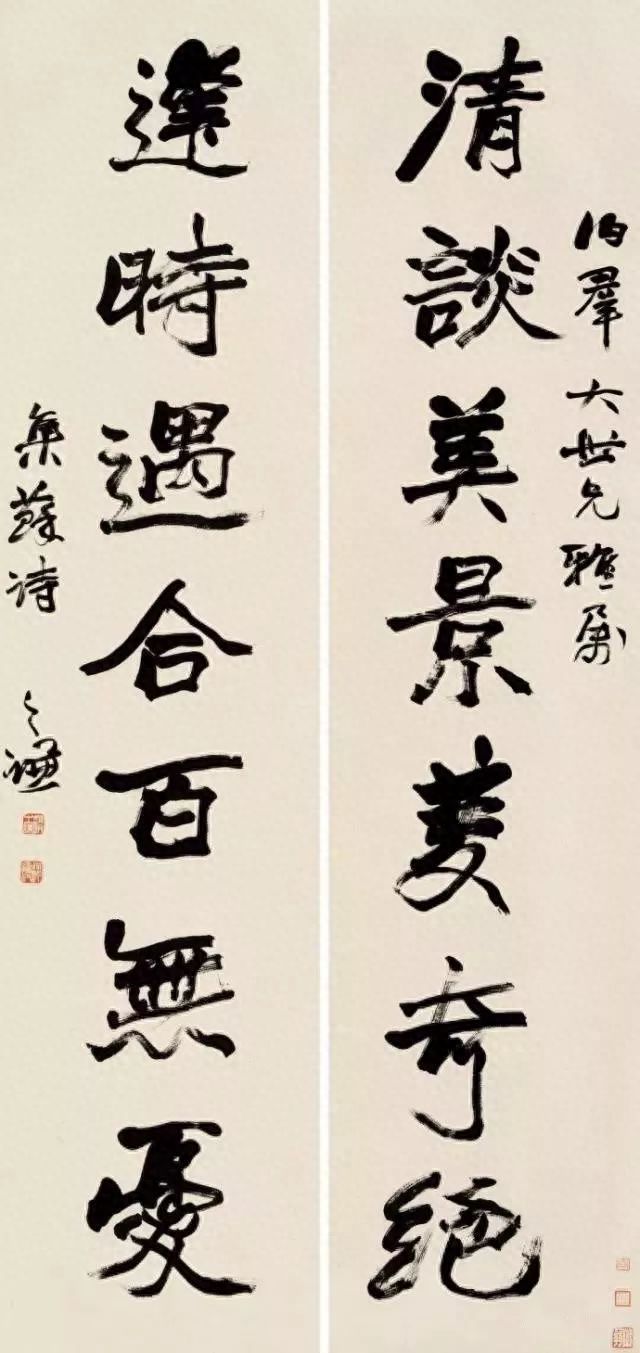 清談美景雙奇絕
伯羣大世兄雅屬
逢時遇合百無憂
集蘇詩
之謙